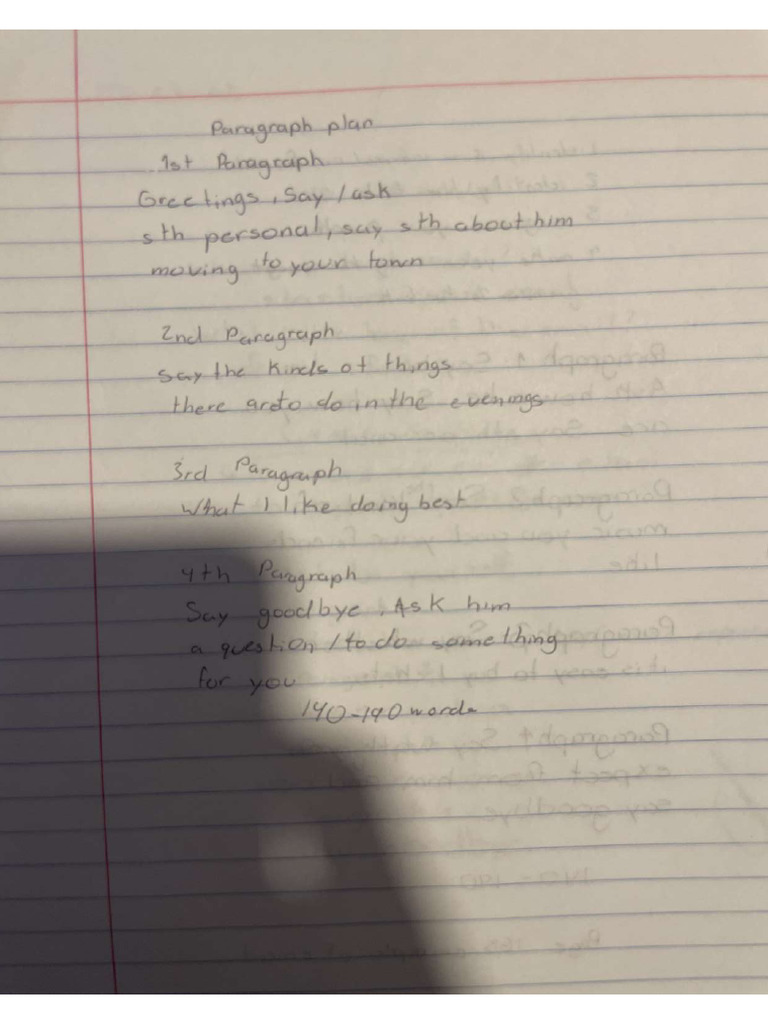 Paragraph plan
1st Paragraph
Greetings, Say / ask
sth personal, say sth about him
moving to your town
2nd Paragraph
say the kinds of things
there are to do in the evenings
3rd Paragraph
What I like doing best
4th Paragraph
Say goodbye, Ask him
a question / to do something
for you
140-190 words